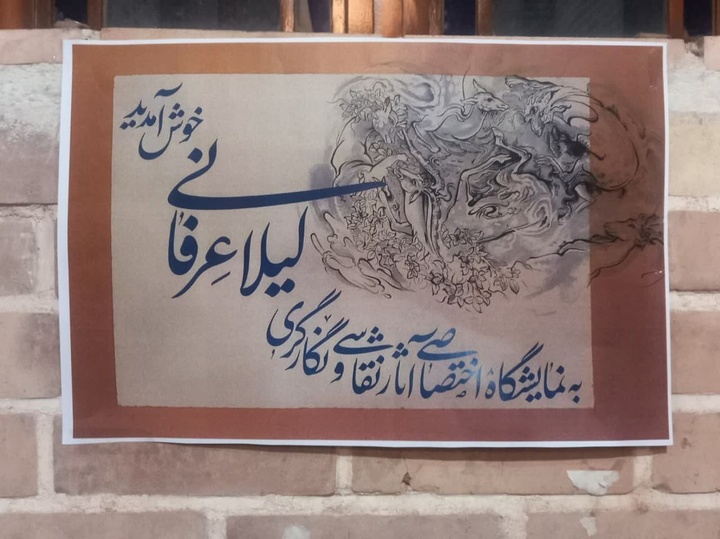 به نمایشگاه اختصاصی آثار نقاشی و نگارگری
لیلا عرفانی
خوش آمدید